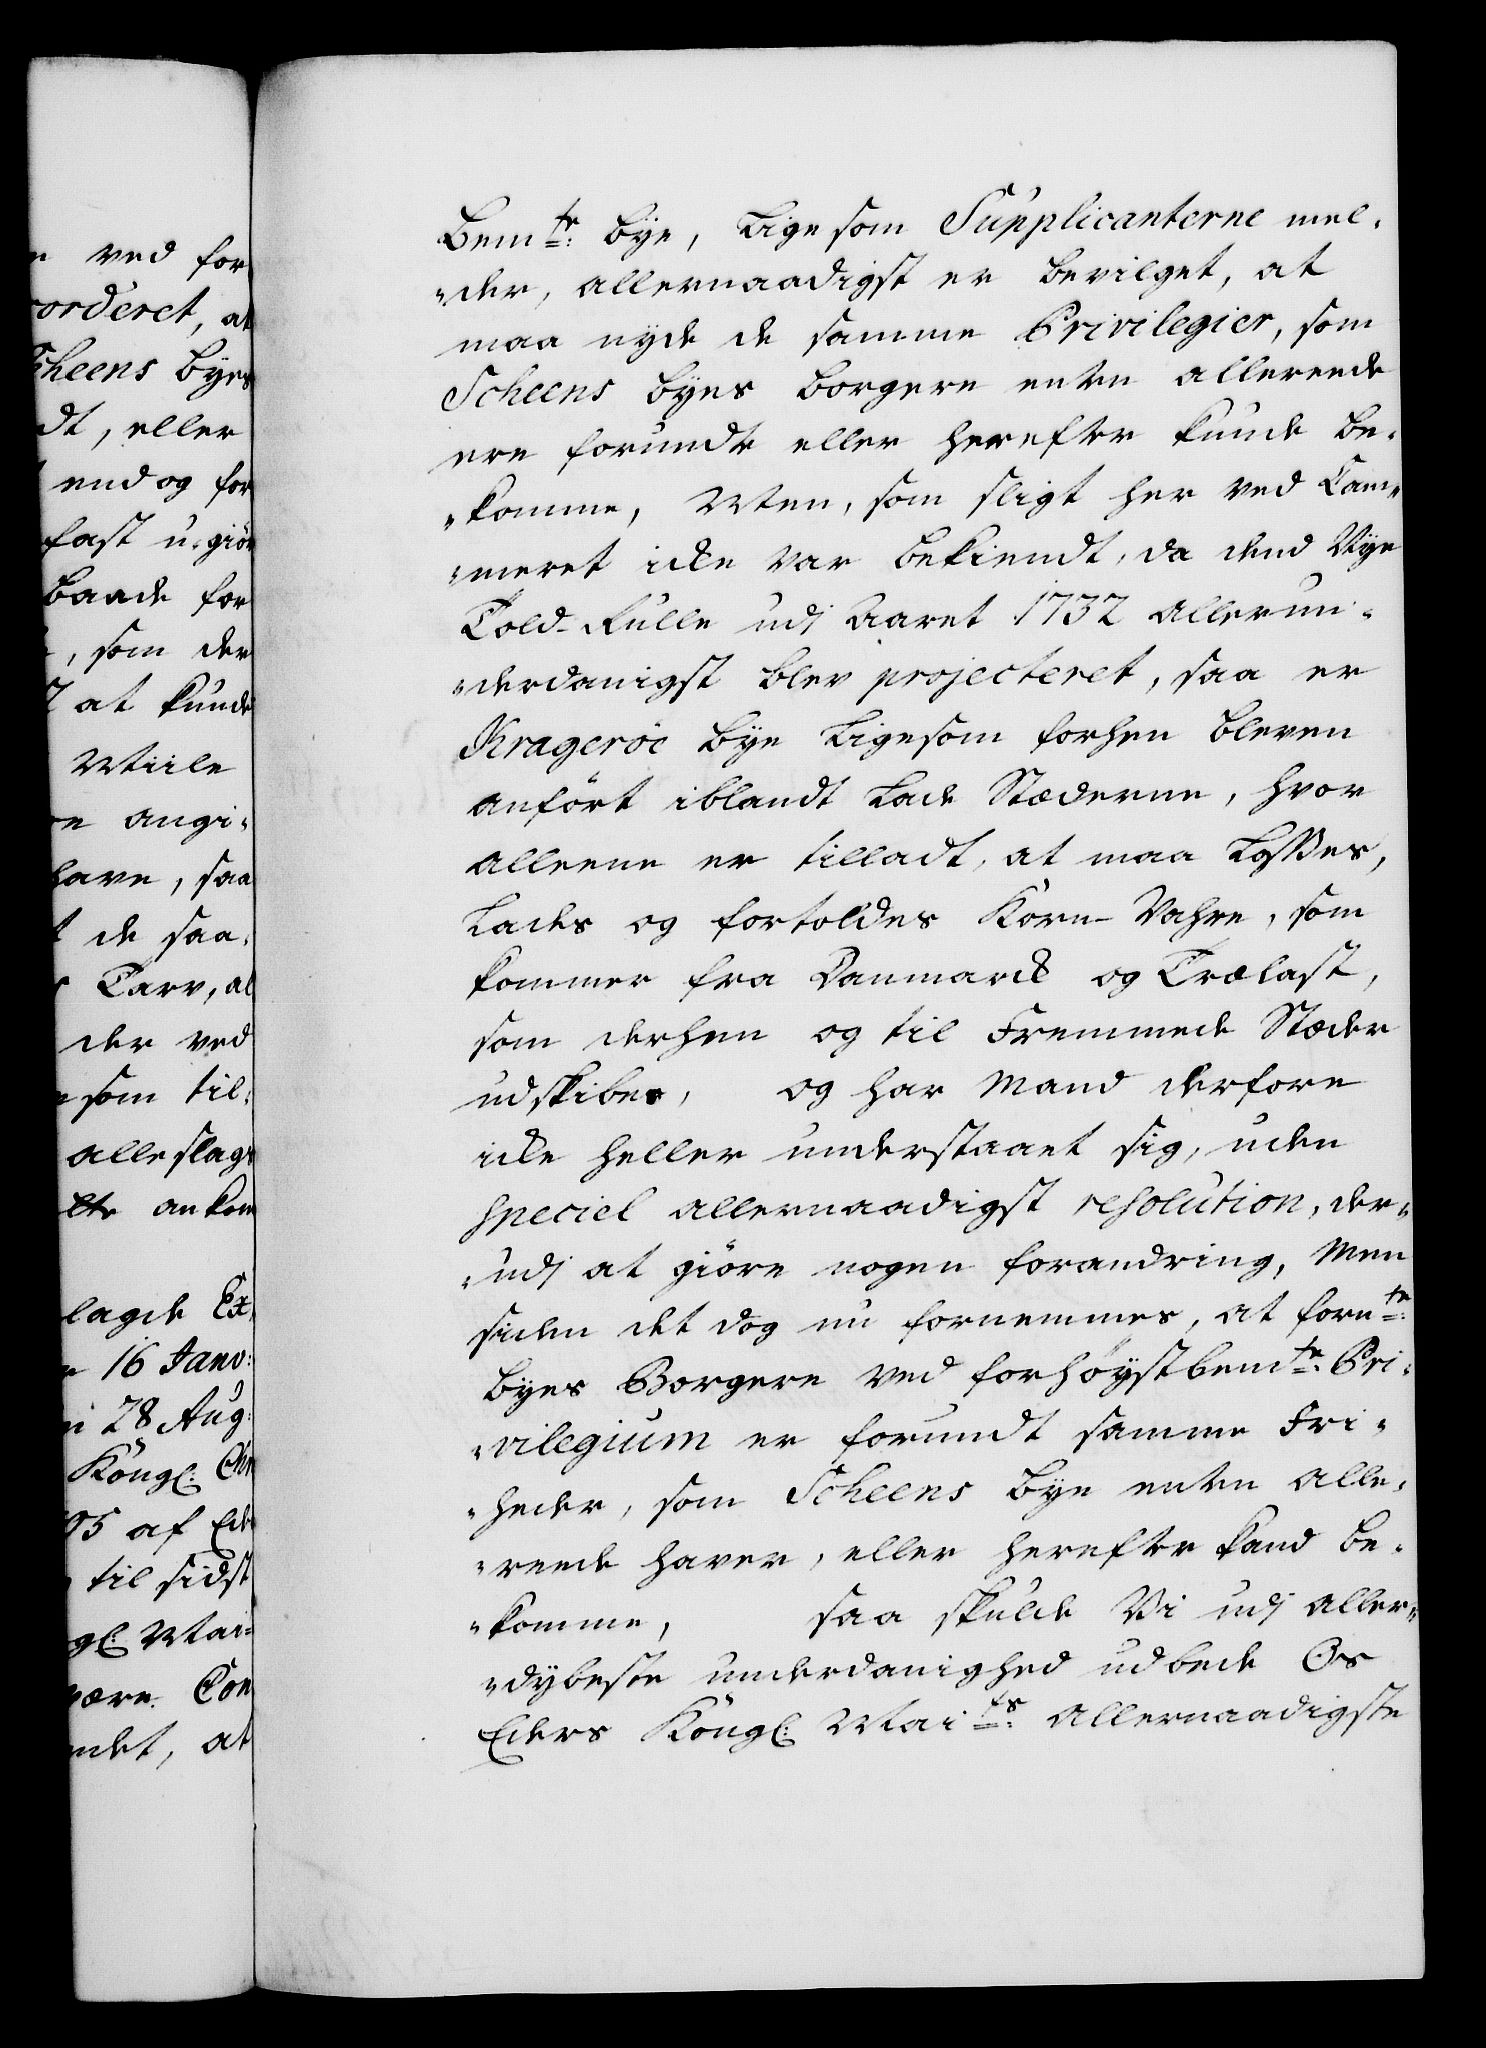 n ved for
orderet, at
cheens Byes
dt, eller
end og for
fast u-giör
baade for
, som der
at kunde
Miile
en angi-
have, saa
t de saa-
Tarv, al
der ved
som til-
alle slags
lte ankom
lagde Ex
16 Janv:
28 Aug:
Kongl: Chr
95 af Ede
til sidst
gl: Mai-
være Con
ndet, at
Bemte: Bye, Ligesom Supplicanterne mel-
"der, allernaadigst er bevilget, at
maa nyde de samme Privilegier, som
Scheens Byes Borgere enten allereede
ere forundte eller herefter kunde be-
"komme, Men, som sligt her ved Cam"
"meret icke var bekiendt, da dend Nye
Told-Rulle udj Aaret 1732 allerun-
"derdanigst blev projecteret, saa er
Krageröe Bye Ligesom forhen bleven
anfört iblandt Lade Stæderne, hvor
alleene er tilladt, at maa Lossses,
Lades og fortoldes Korn-Vahre, som
kommer fra Danmarck og Trælast,
som derhen og til Fremmede Stæder
udskibes, og har Mand derfore
icke heller understaaet sig, uden
speciel allernaadigst resolution, der"
"udj at giöre nogen forandring, Men
siden det dog nu fornemmes, at fornte:
Byes Borgere ved forhöystbemte: Pri-
"vilegium er forundt samme Fri-
"heder, som Scheens Bye enten alle-
"reede haver, eller herefter kand be-
"komme, saa skulde Vi udj aller"
"dybeste underdanighed udbede Os
Eders Kongl: Maits: allernaadigste